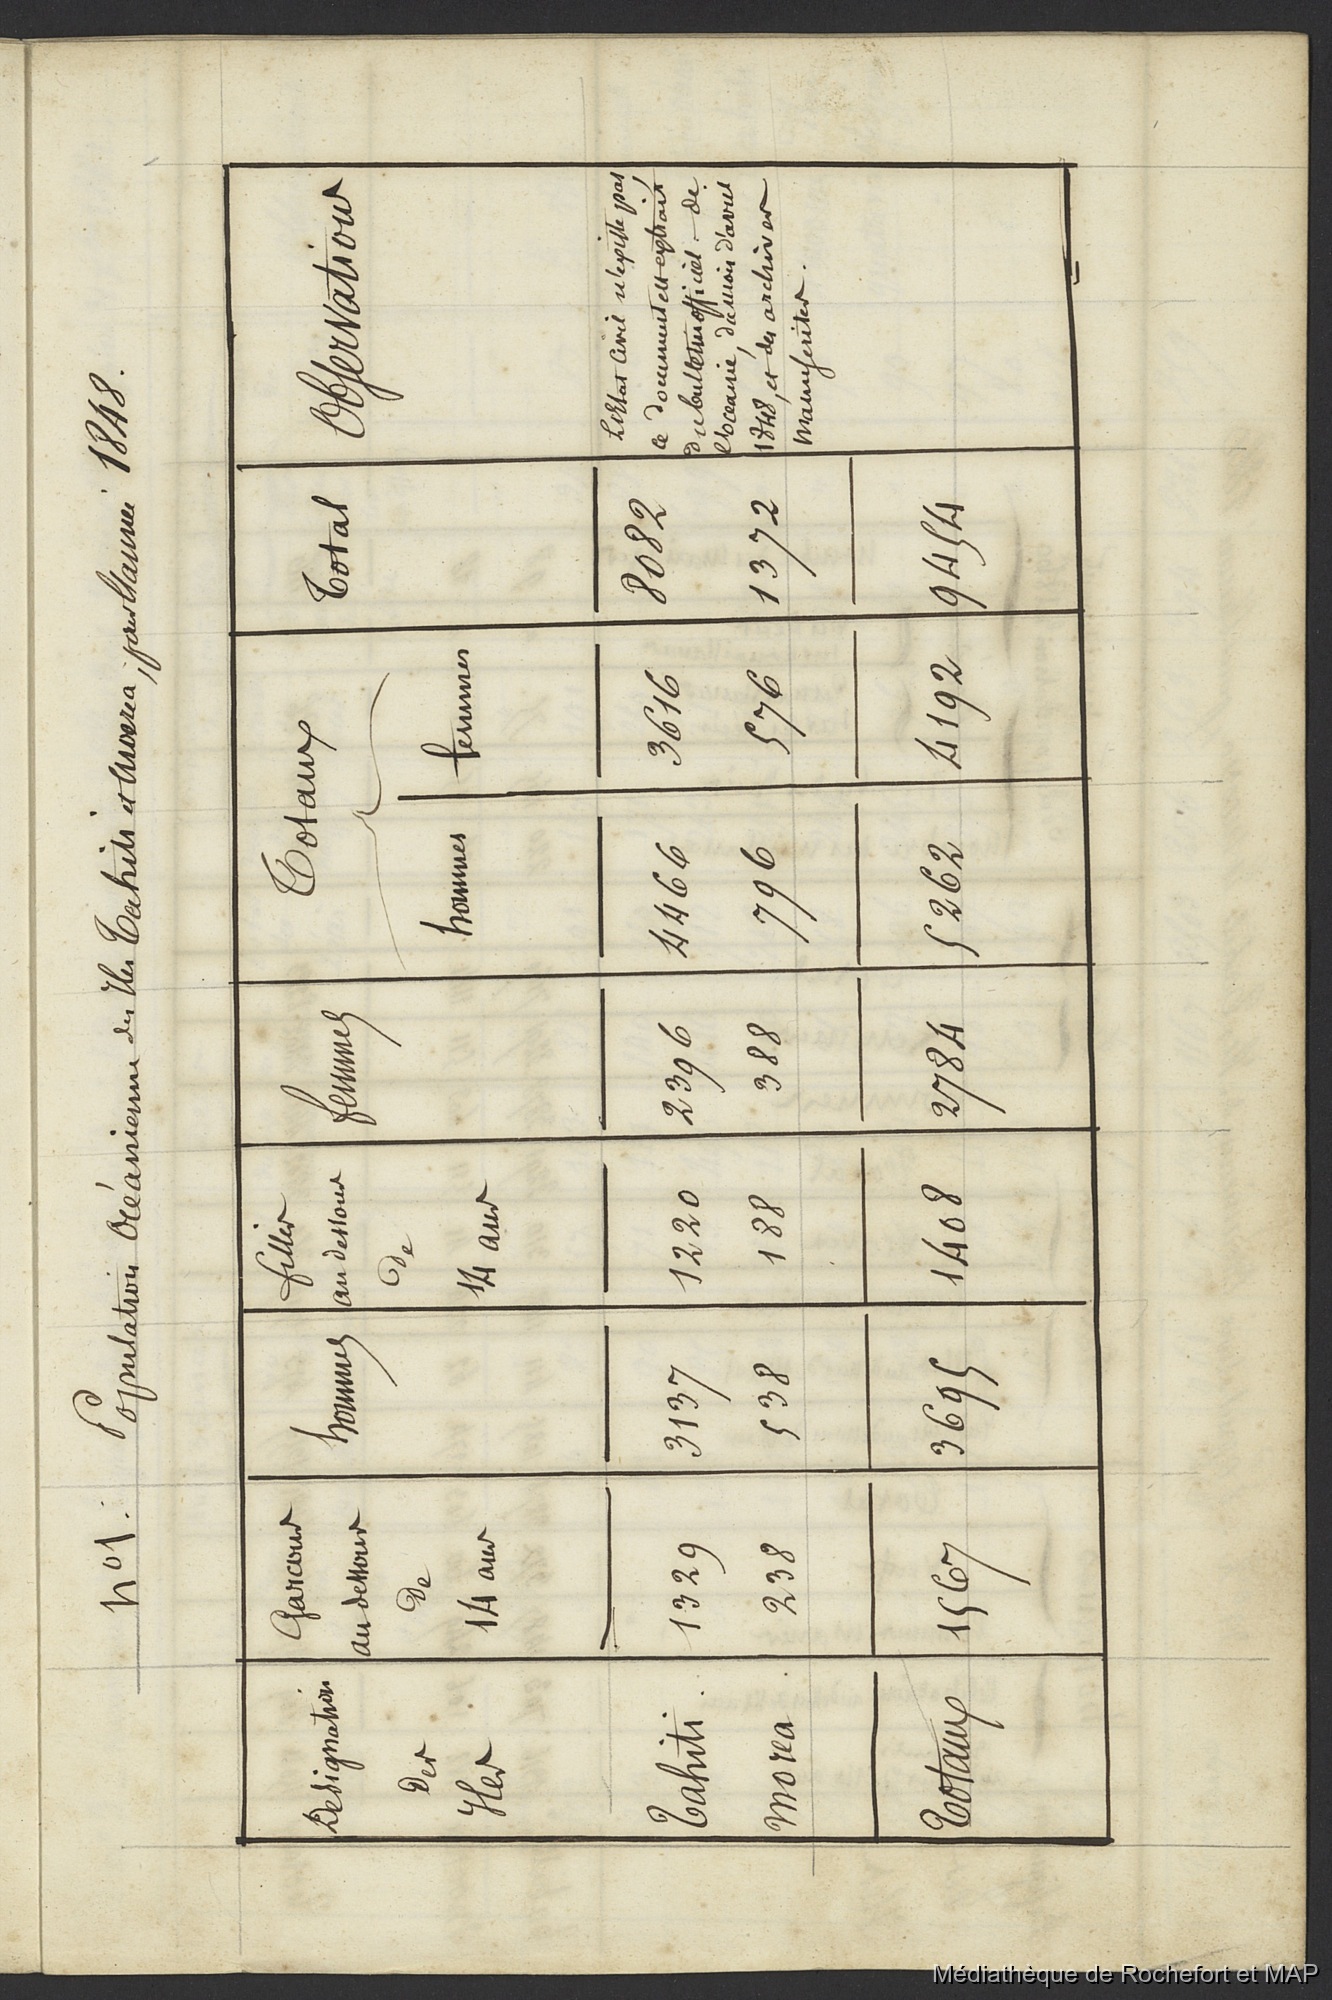 N° 1. Population Océanienne des Iles Tahiti et Morea, pour l'année 1848.
Designation des Iles | Garcons au dessous de 14 ans | hommes | filles au dessous de 14 ans | femmes | Totaux hommes | Totaux femmes | Total | Observations
Tahiti. | 1329 | 3137 | 1220 | 2396 | 4466 | 3616 | 8082
Morea. | 238 | 538 | 188 | 388 | 796 | 576 | 1372
Totaux | 1567 | 3695 | 1408 | 2784 | 5262 | 4192 | 9454
L'Etat Civil n'existe pas,
le document est extrait
du bulletin officiel de
l'océanie, du mois d'avril
1848, et des archives
manuscrites.
Médiathèque de Rochefort et MAP